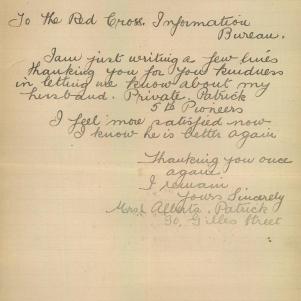 To the Red Cross. Information
Bureau.
I am just writing a few lines
thanking you for your kindness
in letting me know about my
husband. Private. Patrick
5th Pioneers
I feel more satisfied now
I know he is better again
Thanking you once
again.
I remain
Yours Sincerely
Mrs Alberta. Patrick
Gilles Street